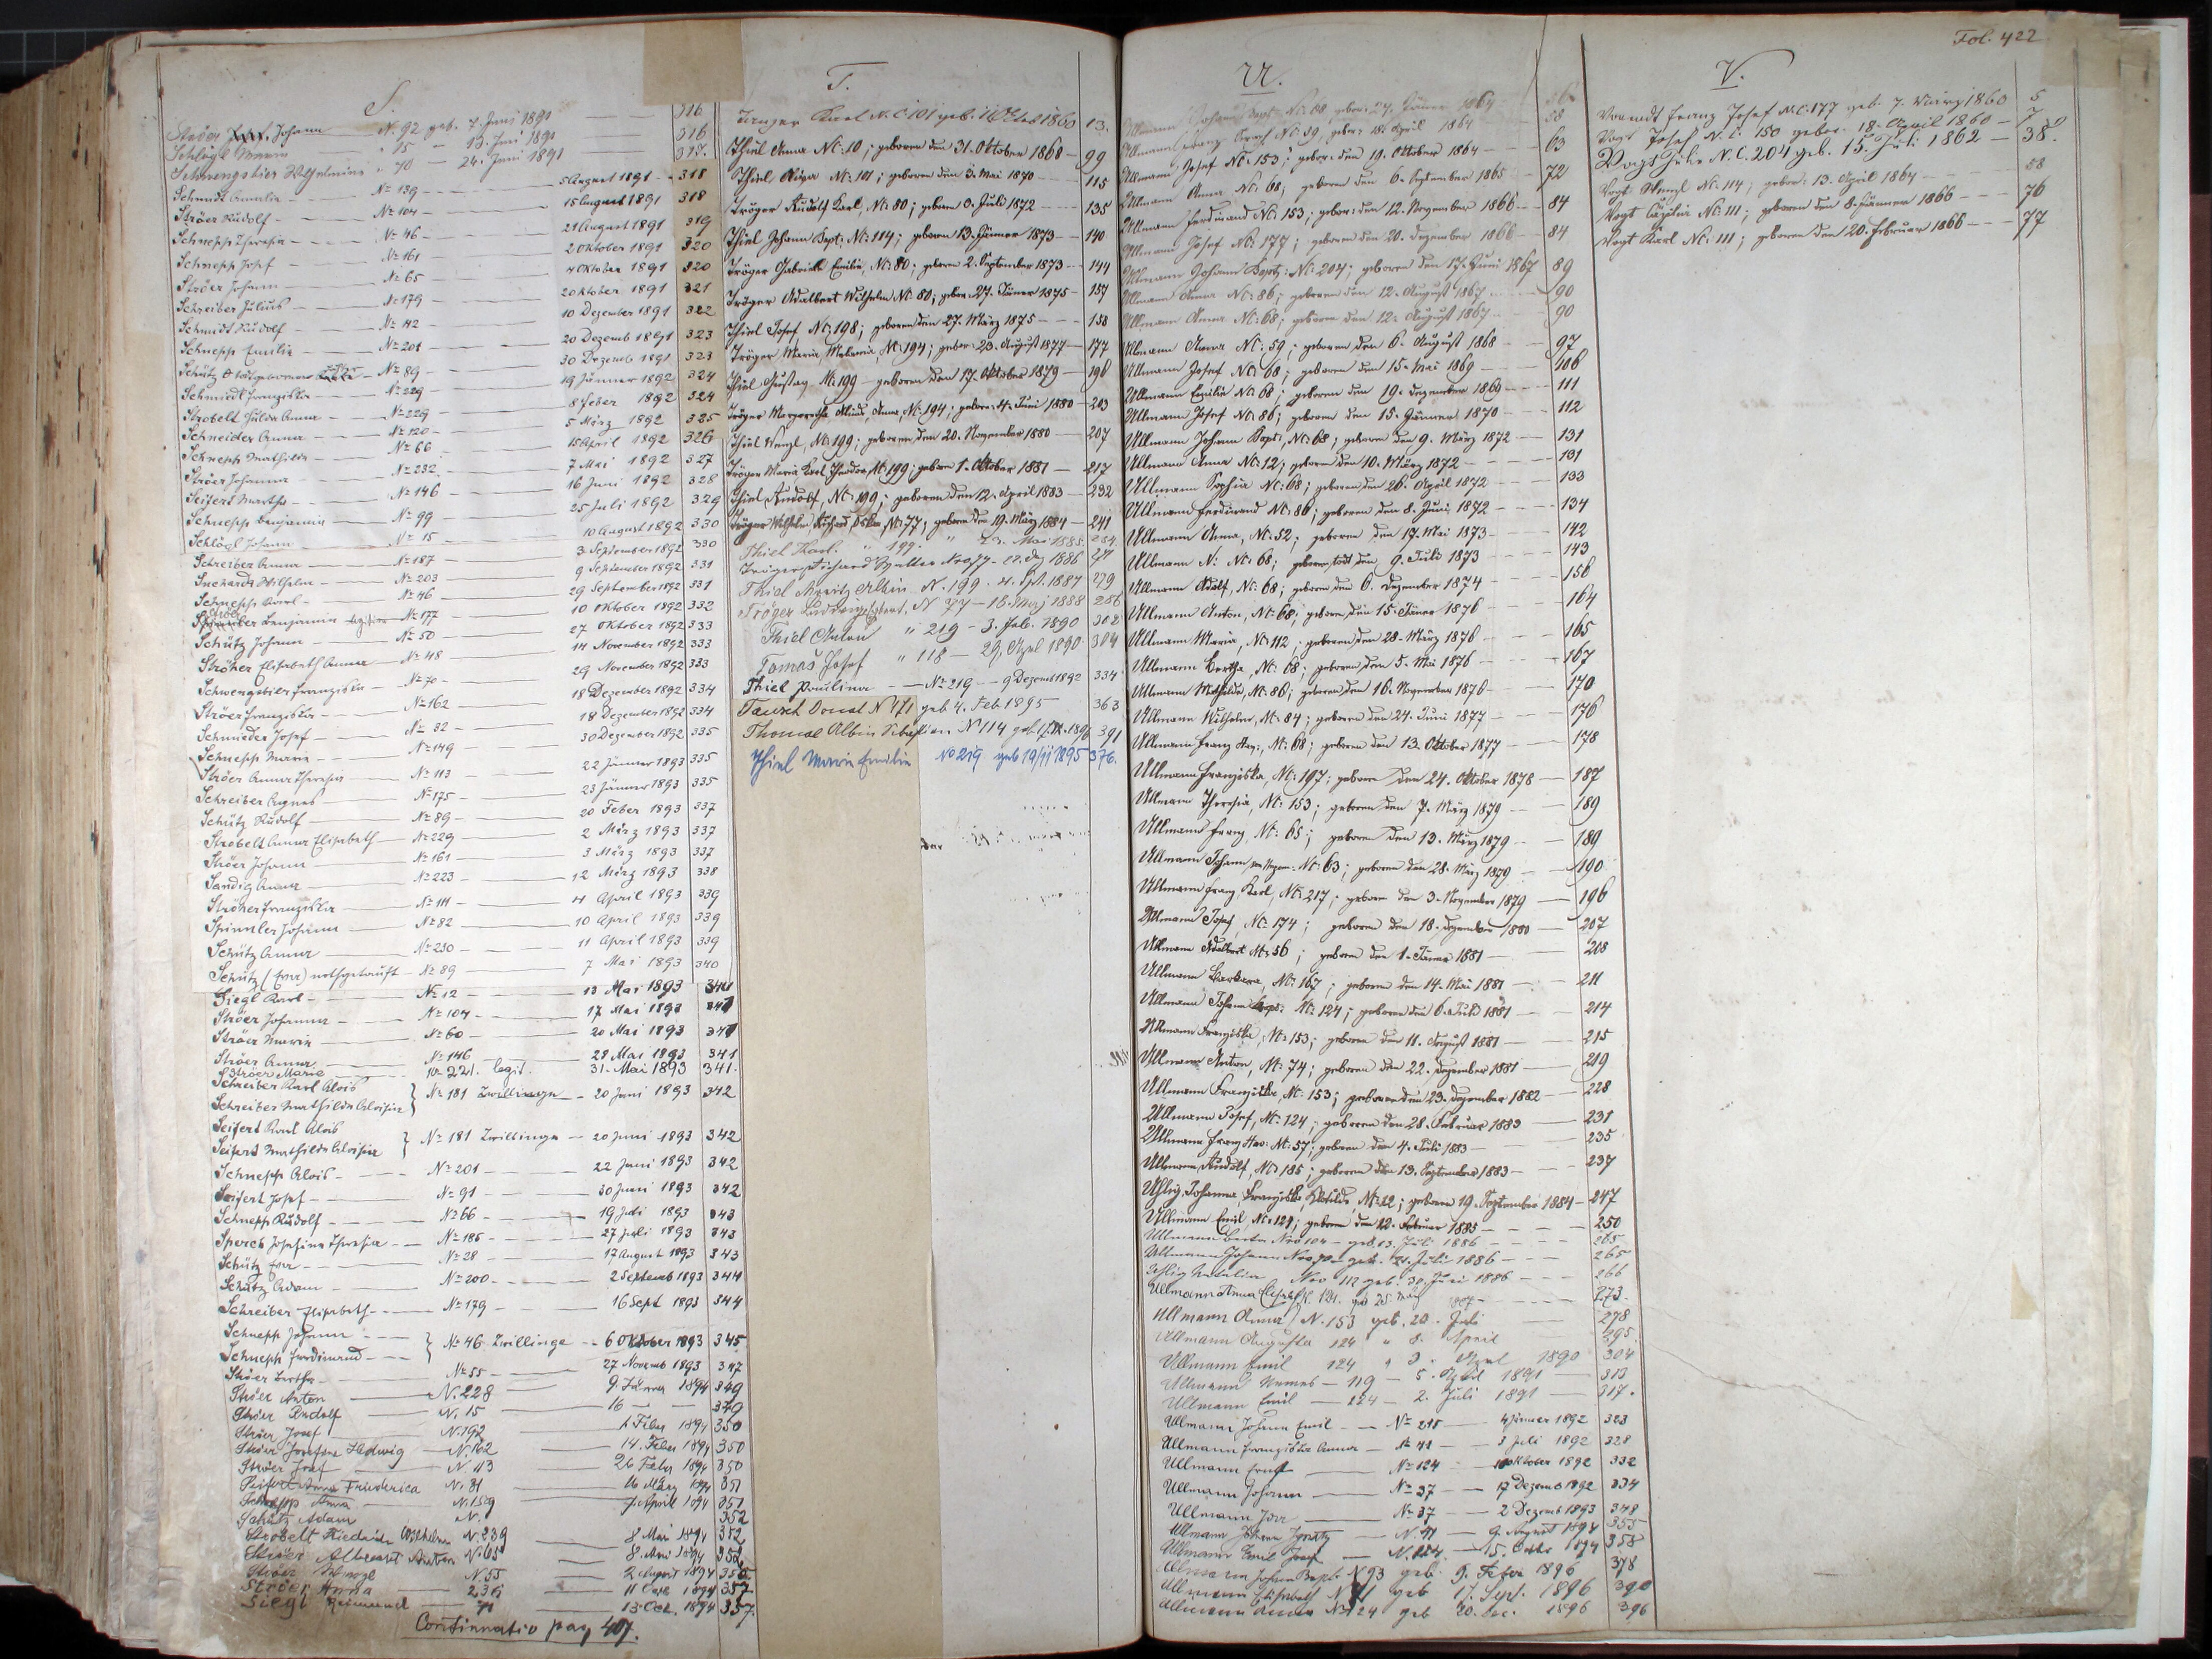 Fol. 422
S.
Ströer Johann N. 92 geb. 7. Juni 1891 316
Schlögl Maria " 15 - 13. Juni 1891 316
Schwengsbier Wilhelmine " 70 - 24. Juni 1891 317.
Schmidt Amalia - No 139 - 5 August 1891 318
Ströer Rudolf - No 104 - 15 August 1891 318
Schnepp Theresia - No 46 - 21 August 1891 319
Schnepp Josef - No 161 2 Oktober 1891 320
Ströer Johann - No 65 4 Oktober 1891 320
Schreiber Julius - No 179 20 Oktober 1891 321
Schmidt Rudolf - No 42 10 Dezember 1891 322
Schnepp Emilia - No 201 20 Dezemb 1891 323
Schütz todtgeborene - No 89 30 Dezemb 1891 323
Schmiedl Franziska - No 229 19 Jänner 1892 324
Strobelt Hulda Anna - No 229 8 Feber 1892 324
Schneider Anna - No 120 5 März 1892 325
Schnepp Mathilda - No 66 15 April 1892 326
Ströer Johanna - No 232 7 Mai 1892 327
Seifert Martha - No 146 16 Juni 1892 328
Schnepp Benjamin - No 99 25 Juli 1892 329
Schlögl Johann - No 15 10 August 1892 330
Schreiber Anna - No 187 3 September 1892 330
Wilhelm - No 203 9 September 1892 331
Schnepp Karl - No 46 29 September 1892 331
Benjamin - No 177 10 Oktober 1892 332
Schütz Johann - No 50 27 Oktober 1892 333
Ströher Elisabeth Anna - No 48 14 November 1892 333
Schwengsbier Franziska - No 70 29 November 1892 333
Ströer Franziska - No 162 18 Dezember 1892 334
Schmieder Josef - No 32 18 Dezember 1892 334
Schnepp Maria - No 149 30 Dezember 1892 335
Ströer Anna Theresia - No 113 22 Jänner 1893 335
Schreiber Agnes - No 175 23 Jänner 1893 335
Schütz Rudolf - No 89 20 Feber 1893 337
Strobelt Anna Elisabeth - No 229 2 März 1893 337
Ströer Johann - No 161 3 März 1893 337
Sandig Anna - No 223 12 März 1893 338
Ströher Franziska - No 111 4 April 1893 339
Spinnler Johann - No 82 10 April 1893 339
Schütz Anna - No 230 11 April 1893 339
Schütz (Eva) nothgetauft - No 89 7 Mai 1893 340
Siegl Karl - No 12 - 13 Mai 1893 341
Ströer Johanna - No 104 - 17 Mai 1893 341
Ströer Maria - No 60 - 20 Mai 1893 341
Ströer Anna - No 146 28 Mai 1893 341
Ströer Marie - No 221. legit. 31. Mai 1893 341.
Schreiber Karl Alois
Schreiber Mathilda Aloisia } No 181 Zwillinge - 20 Juni 1893 342
Seifert Karl Alois
Seifert Mathilda Aloisia } No 181 Zwillinge - 20 Juni 1893 342
Schnepp Alois - No 201 - 22 Juni 1893 342
Seifert Josef - No 91 - 30 Juni 1893 342
Schnepp Rudolf - No 66 - 19 Juli 1893 343
Josefine Theresia - No 186 - 27 Juli 1893 343
Schütz Eva - No 28 - 17 August 1893 343
Schütz Adam - No 200 - 2 Septemb 1893 344
Schreiber Elisabeth - No 179 - 16 Sept 1893 344
Schnepp Johann
Schnepp Ferdinand } No 46 Zwillinge - 6 Oktober 1893 345
Ströer Bertha - No 55 - 27 Novemb 1893 347
Ströer Anton - N. 228 9. Jänner 1894 349
Ströer Rudolf - N. 15 16 - 349
Ströer Josef - N. 192 1 Feber 1894 350
Ströer Josefine Hedwig - N. 162 14. Feber 1894 350
Ströer Josef - N. 113 26 Feber 1894 350
Seifert Anna Friederica N. 81 16 März 1894 351
Schnepp Anna - N. 159 7. April 1894 351
Schütz Adam N. 352
Strobelt Friedrich Wilhelm N. 239 8 Mai 1894 352
Ströer Albrecht Anton N. 65 8. Mai 1894 352
Ströer Wenzl N. 55 2 August 1894 355
Ströer Anna 236 11 Octb 1894 357
Siegl Reimund 13. Oct. 1894 357.
Continuatio pag 407.
T.
Karl N.C. 101 geb. 1860 13.
Thiel Anna NC: 10; geboren den 31. Oktober 1868 - 99
Thiel NC: 101; geboren den 3. Mai 1870 - 115
Tröger Rudolf Karl, NC: 80; geboren 3. Juli 1872 - 135
Thiel Johann Bapt: NC: 114; geboren 13. Jänner 1873 - 140
Tröger Gabriele Emilie, NC: 80; geboren 2. September 1873 - 144
Tröger Adalbert Wilhelm NC: 80; gebor. 27. Jänner 1875 - 157
Thiel Josef NC: 198; geboren den 27. März 1875 - 158
Tröger Maria Melania, NC: 194; gebor: 23. August 1877 - 177
Thiel Gustav NC: 199 - geboren den 17. Oktober 1879 - 196
Tröger Margaretha Anna, NC: 194; gebor: 4. Juni 1880 - 203
Thiel Wenzl, NC: 199; geboren den 20. November 1880 - 207
Tröger Maria Karl Theodor, NC: 199; geboren 1. Oktober 1881 - 217
Thiel Rudolf, NC: 199; geboren den 12. April 1883 - 232
Tröger Wilhelm Richard Oskar, NC: 77; geboren den 19. März 1884 - 241
Thiel Karl. " 199. " Mai 1885. 254.
Tröger Richard Nro 77. 22. Dez 1886 271
Thiel Moritz Albin N. 199. 4. Spt. 1887 279
Tröger N 77 - 18. März 1888 286
Thiel Anton " 219 - 3. Feb. 1890 302
Tomaš Josef " 118 - 29. April 1890 304
Thiel Paulina - No 219 - 9 Dezemb 1892 334.
Tausch Donat N 171 geb 4. Feb 1895 363
Thomas Albin N 114 geb. 1896 391
Thiel Marie Emilie No 219 geb 19/11 1895 376.
U.
Ullmann Johann Bapt: NC: 68 gebor: 27. Jänner 1864
Ullmann Franz NC: 39, gebor: 18. April 1864 58
Ullmann Josef NC: 153; gebor: den 19. Oktober 1864 - 63
Ullmann Anna NC: 68; geboren den 6. September 1865 - 72
Ullmann Ferdinand NC: 153; gebor: den 12. November 1866 - 84
Ullmann Josef NC: 177; geboren den 20. Dezember 1866 - 84
Ullmann Johann Bapt: NC: 204; geboren den 17. Juni 1867 89
Ullmann Anna NC: 86; geboren den 12. August 1867 90
Ullmann Anna NC: 68; geboren den 12. August 1867 - 90
Ullmann Anna NC: 59; geboren den 6. August 1868 - 97
Ullmann Josef NC: 68; geboren den 15. Mai 1869 - 106
Ullmann Emilia NC: 68; geboren den 19. Dezember 1869 - 111
Ullmann Josef NC: 86; geboren den 15. Jänner 1870 - 112
Ullmann Johann Bapt:, NC: 68; geboren den 9. März 1872 - 131
Ullmann Anna NC: 12; geboren den 10. März 1872 - 131
Ullmann Sophia NC: 68; geboren den 26. April 1872 - 133
Ullmann Ferdinand NC: 86; geboren den 8. Juni 1872 - 134
Ullmann Anna, NC: 52; geboren den 17. Mai 1873 - 142
Ullmann N: NC: 68; geboren todt den 9. Juli 1873 - 143
Ullmann Adolf, NC: 68; geboren den 6. Dezember 1874 - 156
Ullmann Anton, NC: 68; geboren den 15. Jänner 1876 - 164
Ullmann Maria, NC: 112; geboren den 28. März 1876 - 165
Ullmann Bertha, NC: 68; geboren den 5. Mai 1876 - 167
Ullmann Mathilda, NC: 86; geboren den 16. November 1876 - 170
Ullmann Wilhelm, NC: 84; geboren den 24. Juni 1877 - 176
Ullmann Franz Xav:, NC: 68; geboren den 13. Oktober 1877 - 178
Ullmann Franziska, NC: 197; geboren den 24. Oktober 1878 - 187
Ullmann Theresia, NC: 153; geboren den 7. März 1879 - 189
Ullmann Franz, NC: 65; geboren den 13. März 1879 - 189
Ullmann Johann von Nepom: NC: 63; geboren den 28. März 1879 - 190
Ullmann Franz Karl, NC: 217; geboren den 3. November 1879 - 196
Ullmann Josef, NC: 174; geboren den 18. Dezember 1880 - 207
Ullmann Adalbert NC: 56; geboren den 1. Jänner 1881 - 208
Ullmann Barbara, NC: 167; geboren den 14. Mai 1881 - 211
Ullmann Johann Bapt: NC: 124; geboren den 6. Juli 1881 - 214
Ullmann Franziska, NC: 153; geboren den 11. August 1881 - 215
Ullmann Anton, NC: 74; geboren den 22. Dezember 1881 - 219
Ullmann Franziska NC: 153; geboren den 23. Dezember 1882 - 228
Ullmann Josef, NC: 124; geboren den 28. Februar 1883 - 231
Ullmann Franz Xav: NC: 57; geboren den 4. Juli 1883 - 235
Ullmann Rudolf, NC: 185; geboren den 13. September 1883 - 237
Uhlig Johanna Franziska Klotilde, NC: 12; geboren 19. September 1884 - 247
Ullmann Emil NC: 124; geboren den 12. Februar 1885 - 250
Ullmann Berta Nro 104 - geb. 13. Juli 1886 - 265
Ullmann Johann Nro 70 - geb. 21. Juli 1886 - 265
Uhlig Natalia Nro 112 geb. 30. Juni 1886 - 266
Ullmann Anna Elisabeth N. 121. geb 25 März 1887 - 273.
Ullmann Anna N. 153 geb. 20. Juli 278
Ullmann Augusta 124 " 8. April 295
Ullmann Emil 124 " 3. April 1890 304
Ullmann - 119 - 5. April 1891 - 313
Ullmann Emil - 124 - 2. Juli 1891 - 317.
Ullmann Johann Emil - No 215 - 4 Jänner 1892 323
Ullmann Franziska Anna - No 41 - 3 Juli 1892 328
Ullmann Ernst - No 124 - Oktober 1892 332
Ullmann Johann - No 37 - 17 Dezemb 1892 334
Ullmann - No 37 - 2 Dezemb 1893 348
Ullmann Johann Ignatz - N. 41 - 9. August 1894 355
Ullmann Emil Josef - N. 124. - 15. Octb 1894 358
Ullmann Johann Bapt. N 93 geb. 9. Feber 1896 378
Ullmann Elisabeth N geb 17. Sept. 1896 390
Ullmann Anna N 124 geb 20. Dec. 1896 396
V.
Franz Josef N.C. 177 geb. 7. März 1860 5
Vogt Josef N.C. 150 gebor. 18. April 1860 - 7
Vogt Julie N.C. 204 geb. 15. Juli 1862 - 38.
Vogt Wenzl NC: 114; gebor: 13. April 1864 - 58
Vogt Cäzilia NC: 111; geboren den 8. Jänner 1866 - 76
Vogt Karl NC: 111; geboren den 20. Februar 1866 - 77